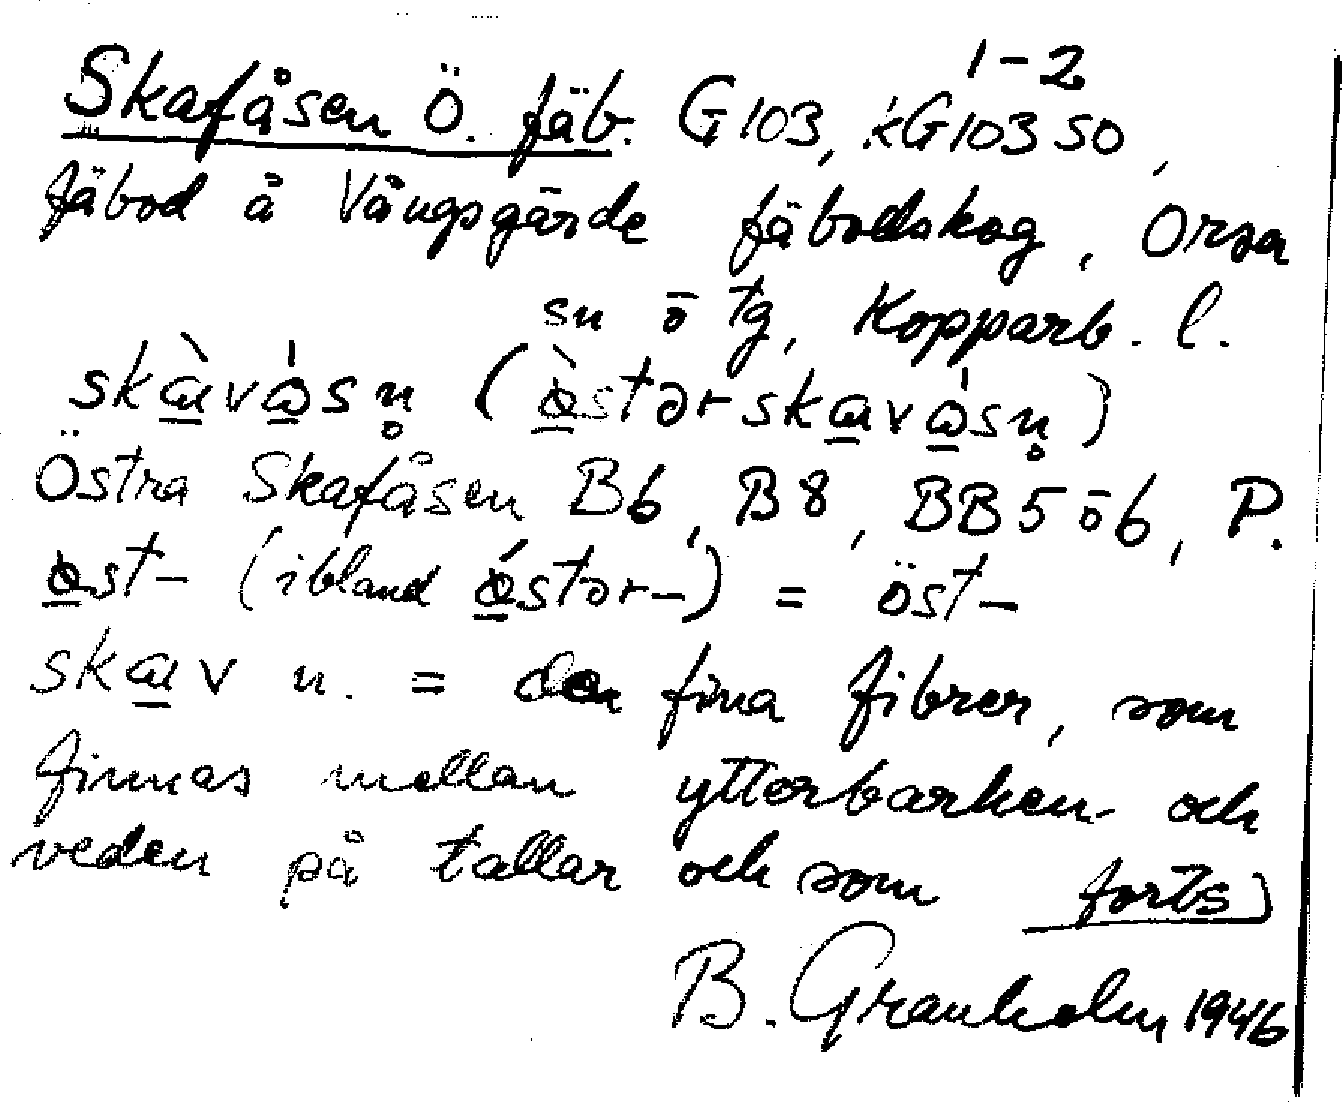 1-2
Skafåsen Ö. fäb. G 103, kG 103 SO,
fäbod å Vångsgärde fäbodskog, Orsa
sn ö tg, Kopparb. l.
skàvåsn̥ (ø̀stərskavåsn̥)
Östra Skafåsen B6, B8, BB5öb, P.
øst- (ibland østər-) = öst-
skav n. = den fina fibrer, som
finnas mellan ytterbarken och
veden på tallar och som forts)
B. Granholm 1946